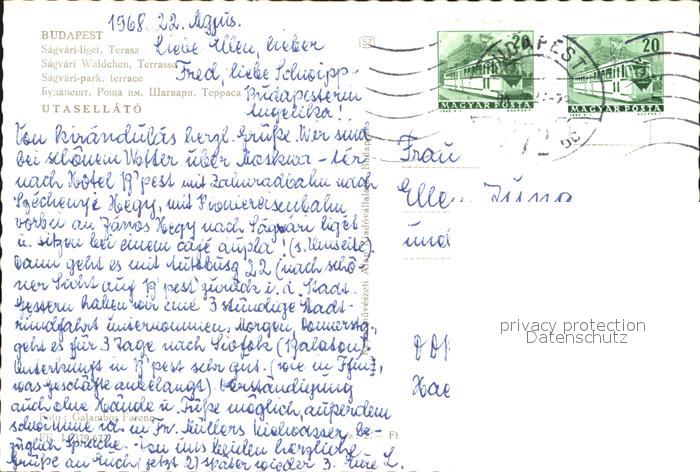 1968. 22. Mgyus.
BUDAPEST
Ságvári-liget. Terasz
Ságvári Wäldchen, Terrasse
Ságvári-park, terrace
Будапешт. Роща им. Шагвари. Терраса
UTASELLÁTÓ
Liebe Ellen, lieber
Fred, liebe
Budapesterin
Angelika!
20
MAGYAR POSTA
20
MAGYAR POSTA
BUDAPEST
Von kirándulás herzl. Grüße. Wir sind
bei schönem Wetter über Moskwa-tér
nach Hotel B'pest mit Zahnradbahn nach
Széchenyi Hegy, mit Pioniereisenbahn
vorbei an János Hegy nach Ságvári liget
u. sitzen bei einem café (s. Umseite).
Dann geht es mit Autobusz 22 (nach schö-
ner Sicht auf B'pest zurück i. d. Stadt.
Gestern haben wir eine 3 stündige Stadt-
rundfahrt unternommen, Morgen, Donnerstg,
geht es für 3 Tage nach Siófok (Balaton).
Unterkunft in B'pest sehr gut. (wie in Ffm,
was geschäfte anbelangt). Verständigung
auch ohne Hände u. Füße möglich, außerdem
schwimme ich in Fr. Müllers Kielwasser be-
züglich Sprache. Von uns beiden herzliche
Grüße an Euch (jetzt 2) später wieder 3. Eure L.
Foto: Galambos Ferenc
Frau
Ellen
und
DDR
privacy protection
Datenschutz